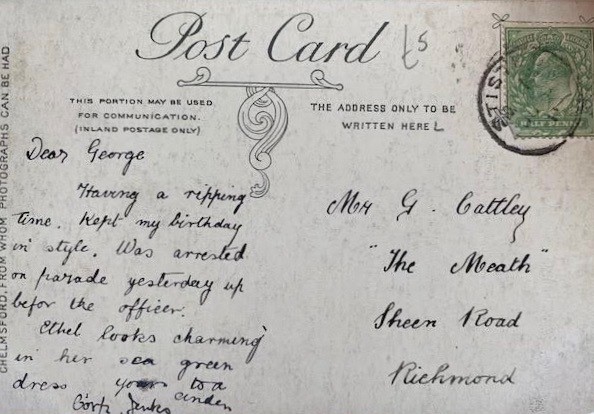 Post Card
THIS PORTION MAY BE USED
FOR COMMUNICATION.
(INLAND POSTAGE ONLY)
THE ADDRESS ONLY TO BE
WRITTEN HERE
CHELMSFORD, FROM WHOM PHOTOGRAPHS CAN BE HAD
Dear George
Having a ripping
time. Kept my birthday
in style. Was arrested
on parade yesterday up
befor the officer.
Ethel looks charming
in her sea green
dress yours to a
cinder
Corp. Jenks
Mr G. Cattley
"The Meath"
Sheen Road
Richmond
HALF PENNY